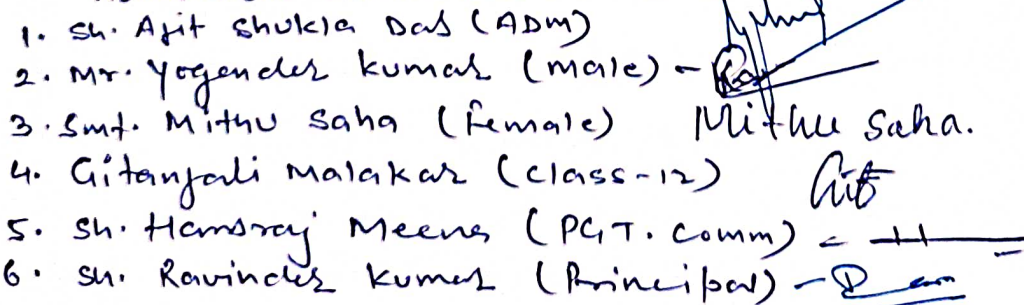 1. Sh. Ajit Shukla Das (ADM)
2. Mr. Yogender Kumar (male) -
3. Smt. Mithu Saha (female) Mithu Saha.
4. Gitanjali Malakar (class-12) Git
5. Sh. Hansraj Meena (PGT. Comm) -
6. Sh. Ravinder Kumar (Principal) -